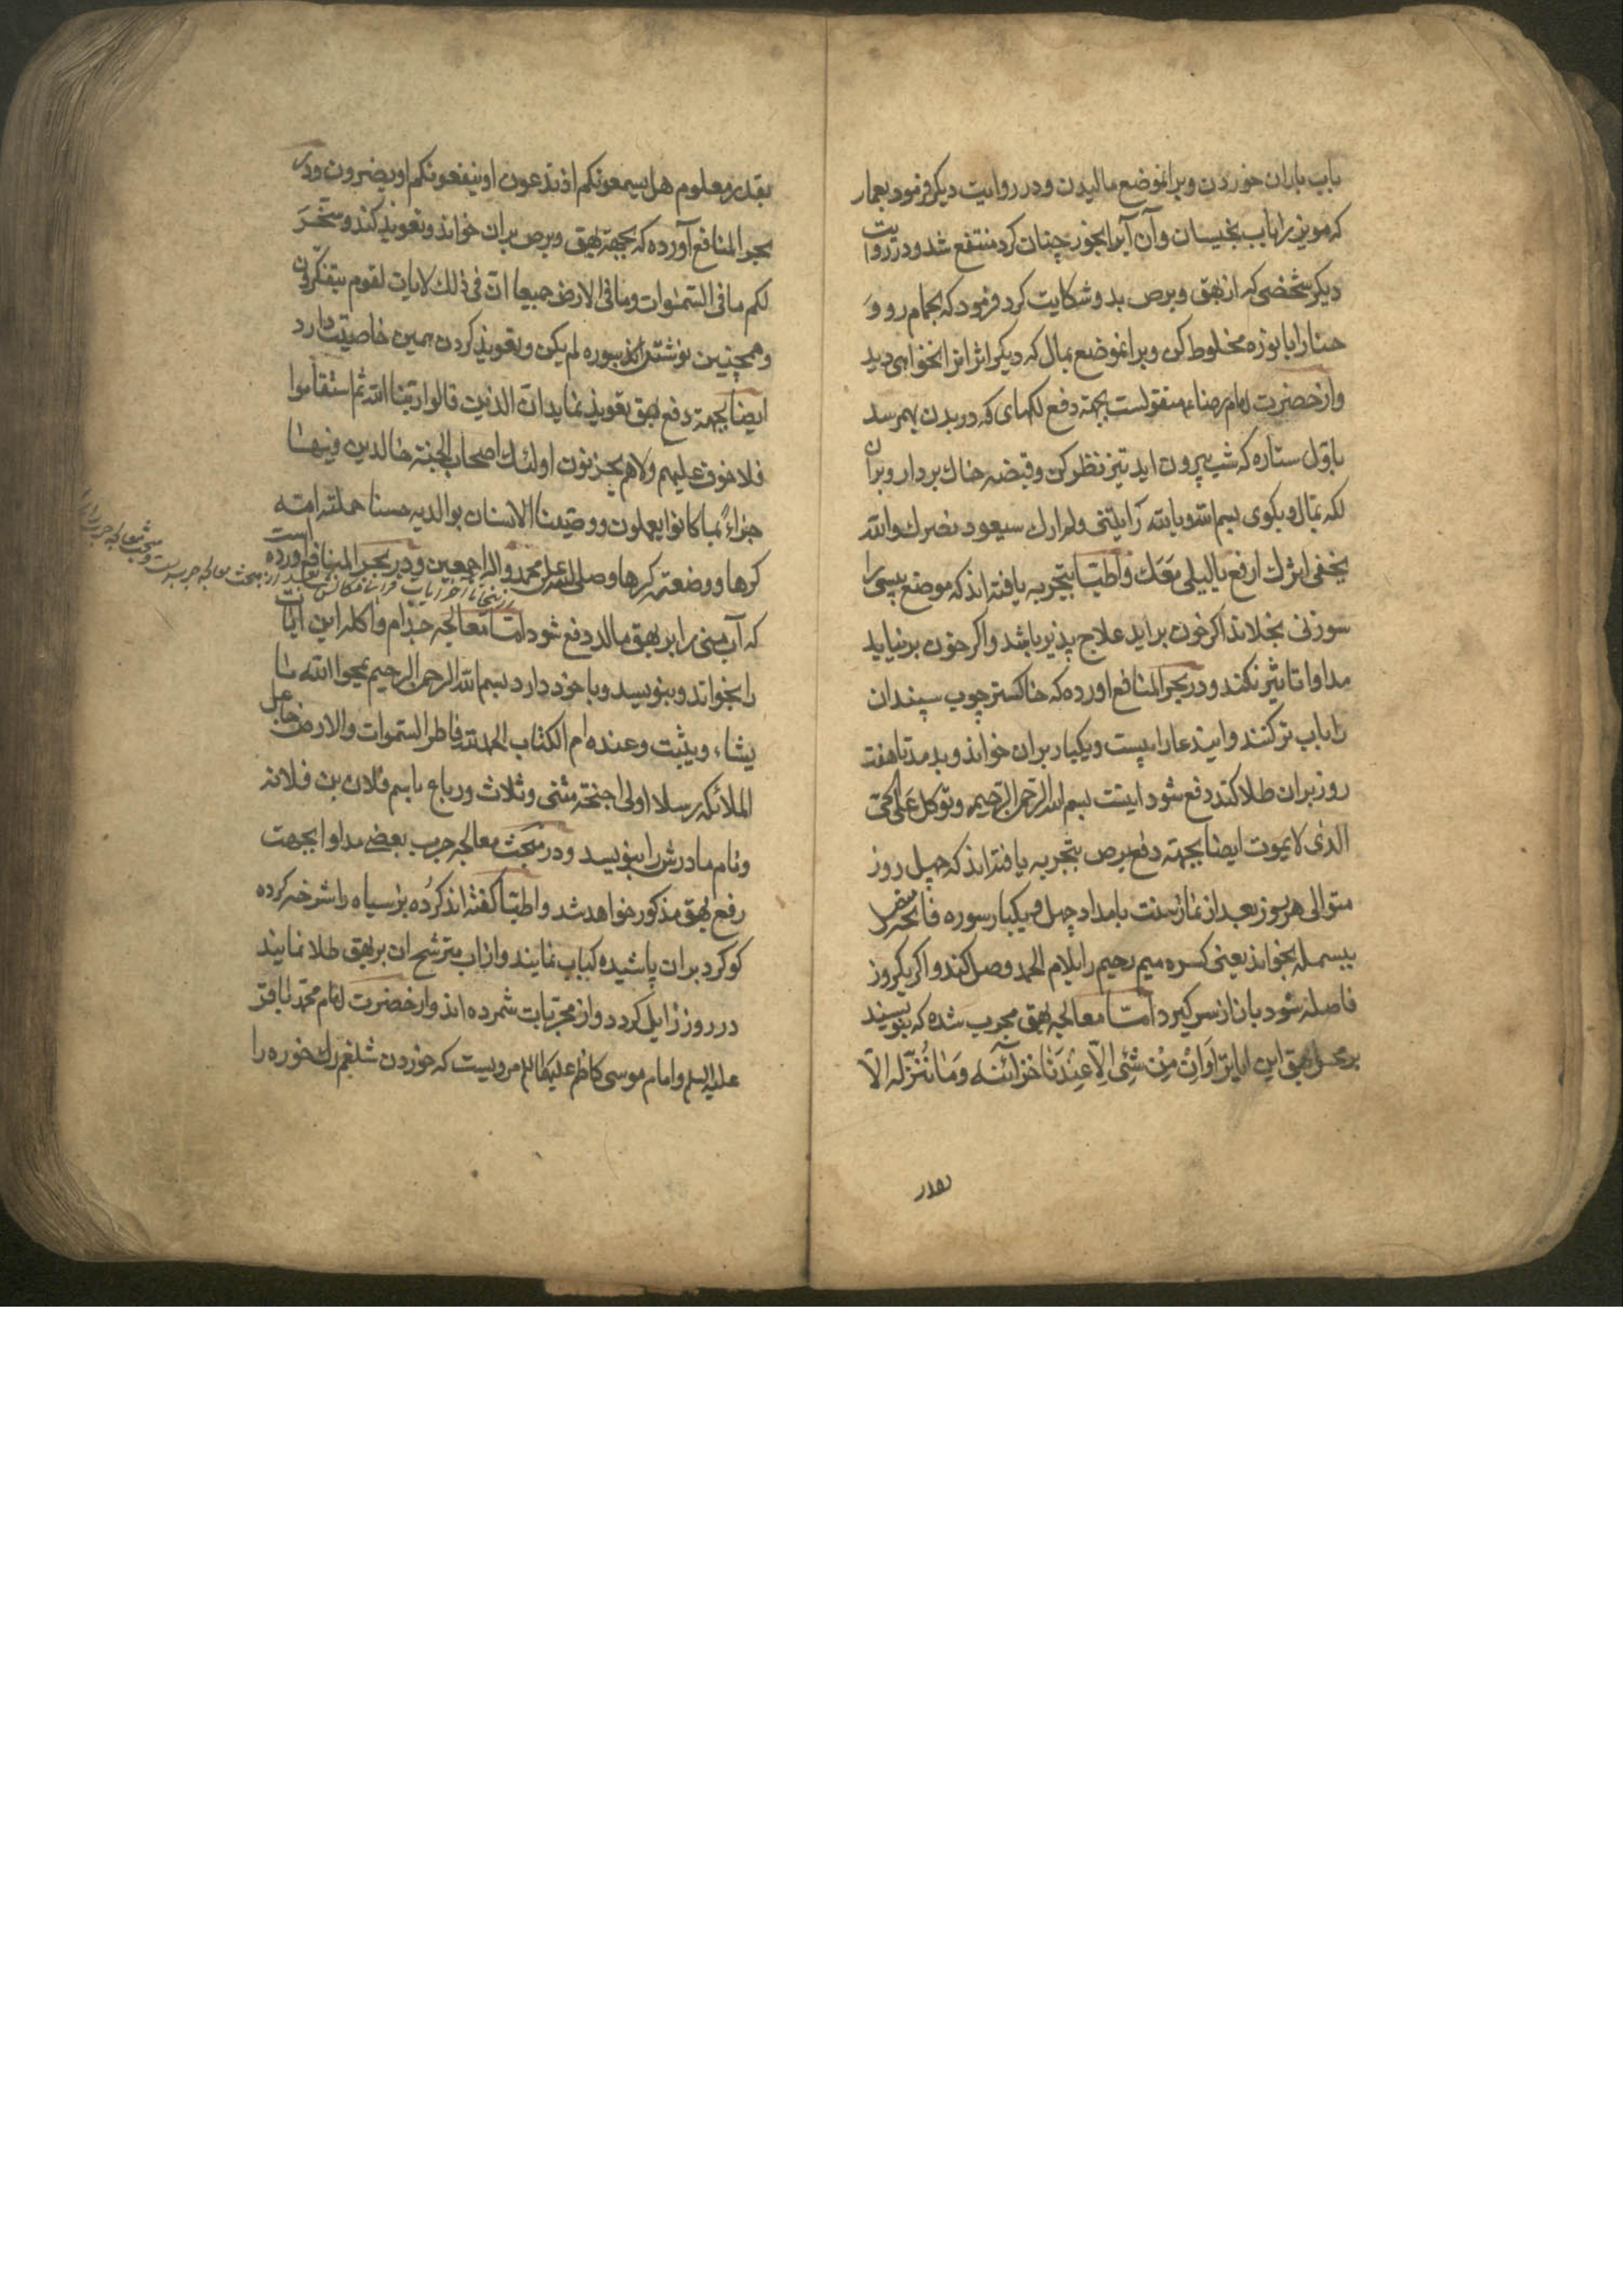 بآب باران خوردن و برانموضع مالیدن و در روایت دیگر فرمود بعمار
که مویز را باب بخیسان و آن آبرا بخور چنان کرد منتفع شد و در روایت
دیگر شخصی که از بهق و برص بدو شکایت کرد فرمود که بحمام رو و
حنا را با نوره مخلوط کن و برانموضع بمال که دیگر اثر انرا نخواهی دید
و از حضرت امام رضاء منقولست بجهته دفع لکهای که در بدن بهم رسد
باول ستاره که شب بیرون اید تیز نظر کن و قبضه خاك بردار و بران
لکه بمال و بکوی بسم الله و بالله سیعود بصرك والله
یخفی اثرك ارفع معك و اطبا بتجربه یافته اند که موضع پیسی را
سوزنی بخلانند اکر خون براید علاج پذیر باشد و اکر خون برنیاید
مداوا تاثیر نکند و در بحر المنافع اورده که خاکستر چوب سپندان
را باب تر کنند و ایندعا را بیست و یکبار بران خواند و بدمد تا هفت
روز بران طلا کند دفع شود اینست بسم الله الرحمن الرحیم و توکل علی الحی
الذی لا یموت ایضا بجهته دفع برص بتجربه یافته اند که چهل روز
متوالی هر روز بعد از نماز سنت بامداد چهل و یکبار سوره فاتحه را
ببسمله بخواند یعنی کسره میم رحیم را بلام الحمد وصل کند و اکر یکروز
فاصله شود باز از سر کیرد امّا معالجه بهق مجرب شده که بنویسند
بر محل بهق این ایات را وَاِنْ مِنْ شَئیٍ اِلّا عِنْدَنَا خَزائنُه وَمَا نُنَزِّلُه الّا
بقدر
بقدر معلوم هل یسمعونکم اذ تدعون او ینفعونکم او یضرون و در
بحر المنافع آورده که بجهته بهق و برص بران خواند و تعویذ کند و سخّرَ
لکم ما فی السّمٰوات وما فی الارض جمیعا انّ فی ذلك لایات لقوم یتفکّرون
و همچنین نوشتن سوره لم یکن و تعویذ کردن همین خاصیّت دارد
ایضا بجهته دفع بهق تعویذ نماید ان الذین قالوا ربّنا الله ثم استقاموا
فلا خوف علیهم ولا هم یحزنون اولئك اصحاب الجنة خالدین فیها
جزاءً بما کانوا یعملون و وصّینا الانسان بوالدیه حسنا حملته امه
کرها و وضعته کرها و صلی الله علی محمد و اله اجمعین و در بحر المنافع اورده است
که آب منی را بر بهق مالد دفع شود امّا معالجه جذام و آکله این ایات
را بخواند و بنویسد و با خود دارد بسم الله الرحمن الرحیم یمحوا الله ما
یشاء و یثبت و عنده ام الکتاب الحمد لله فاطر السّموات و الارض جاعل
الملائکة رسلا اولی اجنحة مثنی و ثلاث و رباع باسم فلان بن فلانه
و نام مادرش را بنویسد و در مبحث معالجه جرب بعضی مداوا بجهت
رفع بهق مذکور خواهد شد و اطبّا کفته اند کرُده بز سیاه را شرخه کرده
کوکرد بران پاشیده کباب نمایند و از اب مترشح ان بر بهق طلا نمایند
در روز زایل کردد و از مجربات شمرده اند و از حضرت امام محمّد باقرّ
علیه السلم و امام موسی کاظم علیهما السلم مرویست که خوردن شلغم رك خوره را